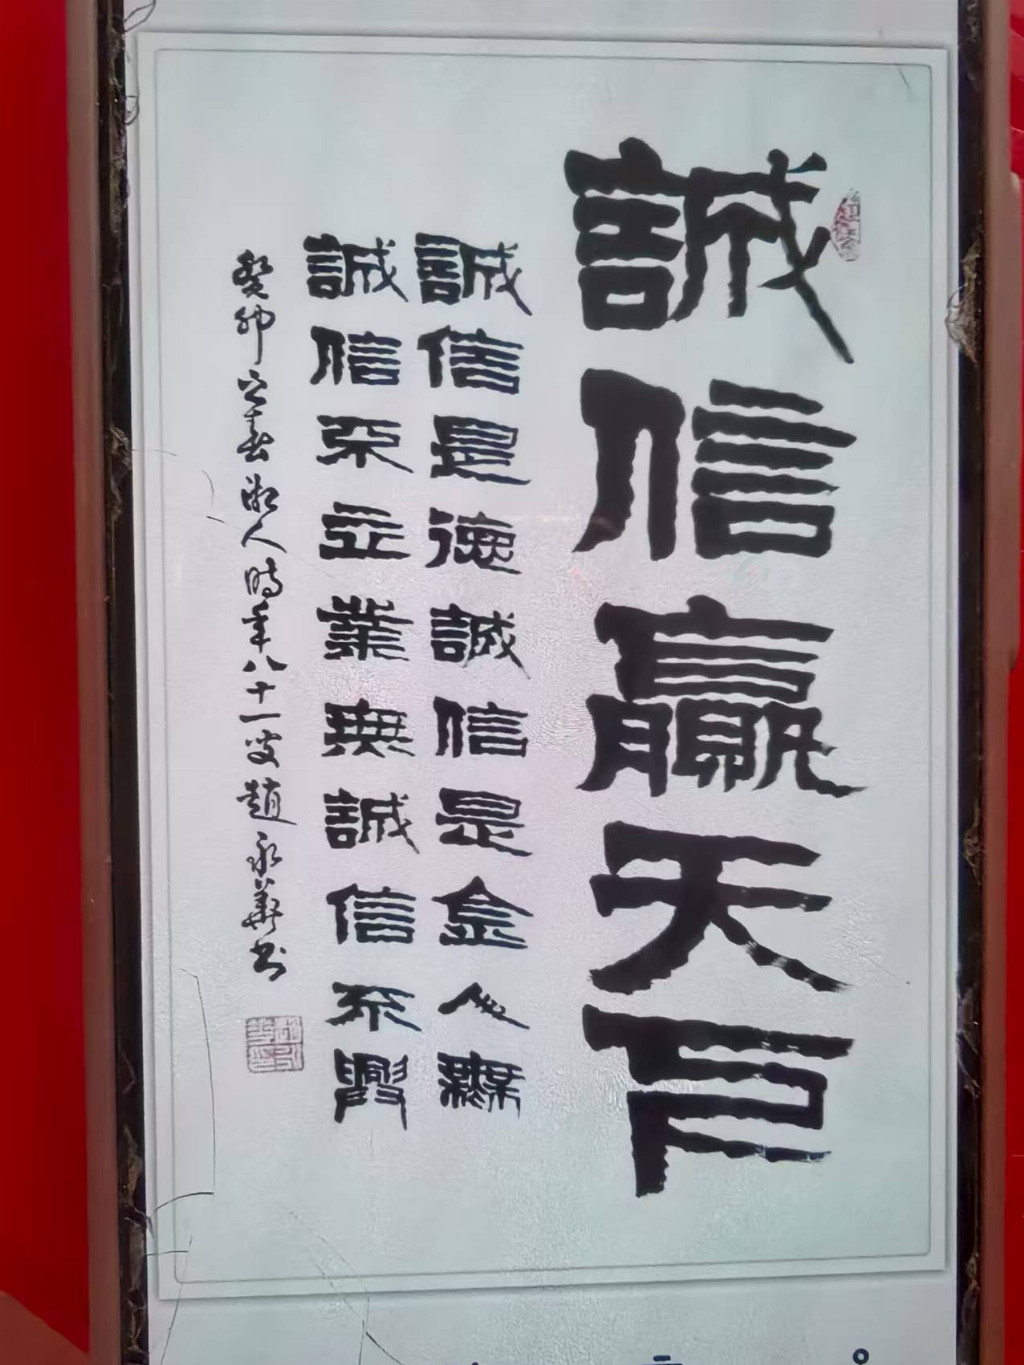 誠信贏天戶
誠信是德誠信是金人無
誠信不立業無誠信不興
癸卯之春湘人時年八十一叟趙永華书